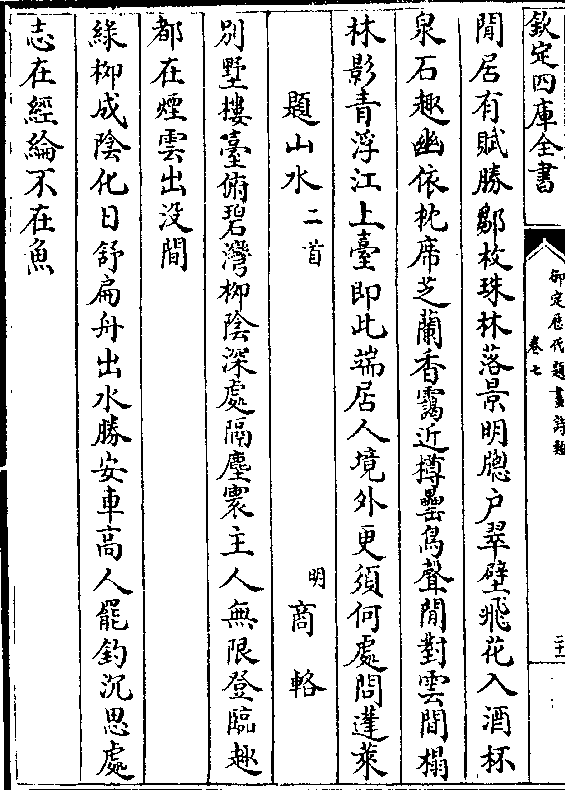 欽定四庫全書
御定歷代題畫詩類
卷七
二十
閒居有賦勝鄒枚珠林落景明牕户翠壁飛花入酒杯
泉石趣幽依枕席芝蘭香靄近樽罍鳥聲閒對雲間榻
林影青浮江上臺即此端居人境外更須何處問蓬萊
題山水二首
明商輅
別墅樓臺俯碧灣栁陰深處隔塵寰主人無限登臨趣
都在煙雲出没間
綠栁成陰化日舒扁舟出水勝安車高人罷釣沉思處
志在經綸不在魚